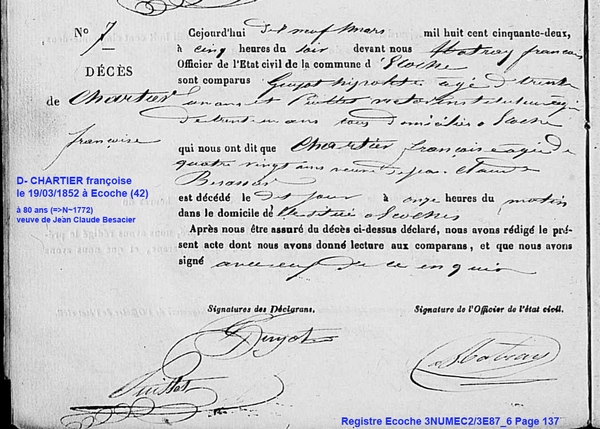 N° 7
DÉCÈS
de Chartier
françoise
D- CHARTIER françoise
le 19/03/1852 à Ecoche (42)
à 80 ans (=>N~1772)
veuve de Jean Claude Besacier
Cejourd'hui dix neuf Mars mil huit cent cinquante-deux,
à cinq heures du soir devant nous Matray françois
Officier de l'Etat civil de la commune d'Ecoche
sont comparus Guyot hipolite agé d'trente
ans et
de trent un ans tous domiciliés a Ecoche
qui nous ont dit que Chartier françoise agée de
quatre vingt ans veuve de jean Claude
est décédé le dit jour à onze heures du matin
dans le domicile de a Ecoche
Après nous être assuré du décès ci-dessus déclaré, nous avons rédigé le pré-
sent acte dont nous avons donné lecture aux comparans, et que nous avons
signé avec eux de ce enquis
Signatures des Déclarans. Signature de l'Officier de l'état civil.
Guyot
Matray
Registre Ecoche 3NUMEC2/3E87_6 Page 137